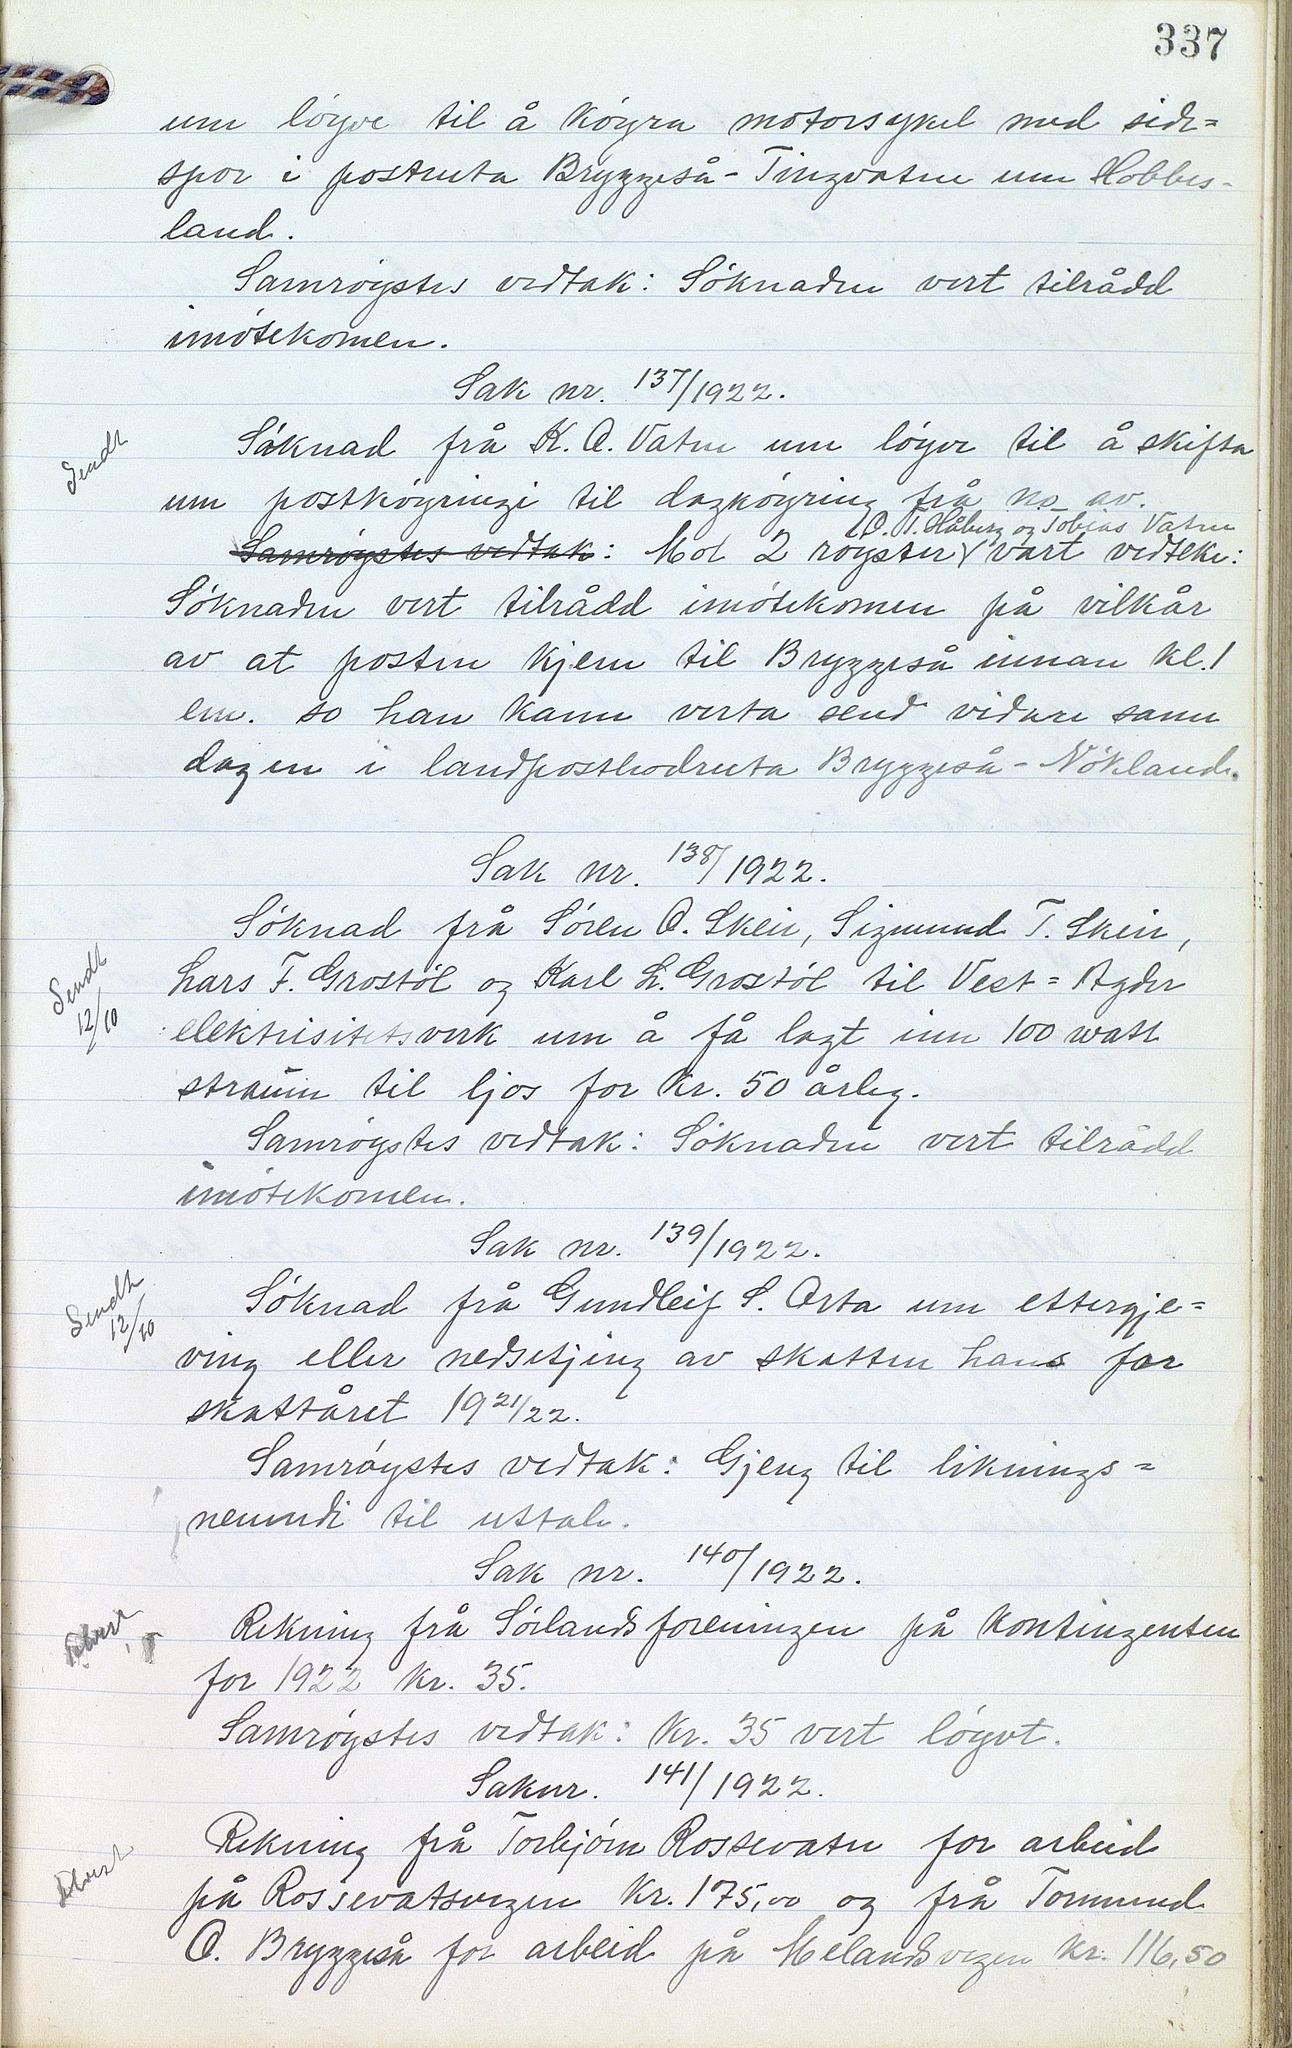 337
um löyve til å köyra motorsykel med side=
spor i postruta Bryggeså - Tingvatne um Hobbes-
land.
Samröystes vedtak: Söknaden vert tilrådd
imötekomen.
Sak nr. 137/1922.
Sendt
Söknad frå K. O. Vatne um löyve til å skifta
um postköyringi til dagköyring frå no av.
O. T. Håberg og Tobias Vatne
Samröystes vedtak: Mot 2 röyster vart vedteke:
Söknaden vert tilrådd imötekomen på vilkår
av at posten kjem til Bryggeså innan kl. 1
em. so han kann verta send vidare same
dagen i landpostbodruta Bryggeså - Nökland.
Sak nr. 138/1922.
Söknad frå Sören O. Skeie, Sigmund T. Skeie,
Sendt
12/10
Lars F. Grostöl og Karl L. Grostöl til Vest=Agder
elektrisitetsverk um å få lagt inn 100 watt
straum til ljos for kr. 50 årleg.
Samröystes vedtak: Söknaden vert tilrådd
imötekomen.
Sak nr. 139/1922.
Sendt
12/10
Söknad frå Gundleif S. Osta um ettergje=
ving eller nedsetjing av skatten hans for
skattåret 1921/22.
Samröystes vedtak: Gjeng til liknings=
nemndi til uttale.
Sak nr. 140/1922.
Rekning frå Sörlandsforeningen på kontingenten
for 1922 kr. 35.
Samröystes vedtak: Kr. 35 vert löyvt.
Sak nr. 141/1922.
Rekning frå Torbjörn Rossevatn for arbeid
på Rossevatsvegen kr. 175,00 og frå Tormund
O. Bryggeså for arbeid på Melandsvegen kr. 116,50